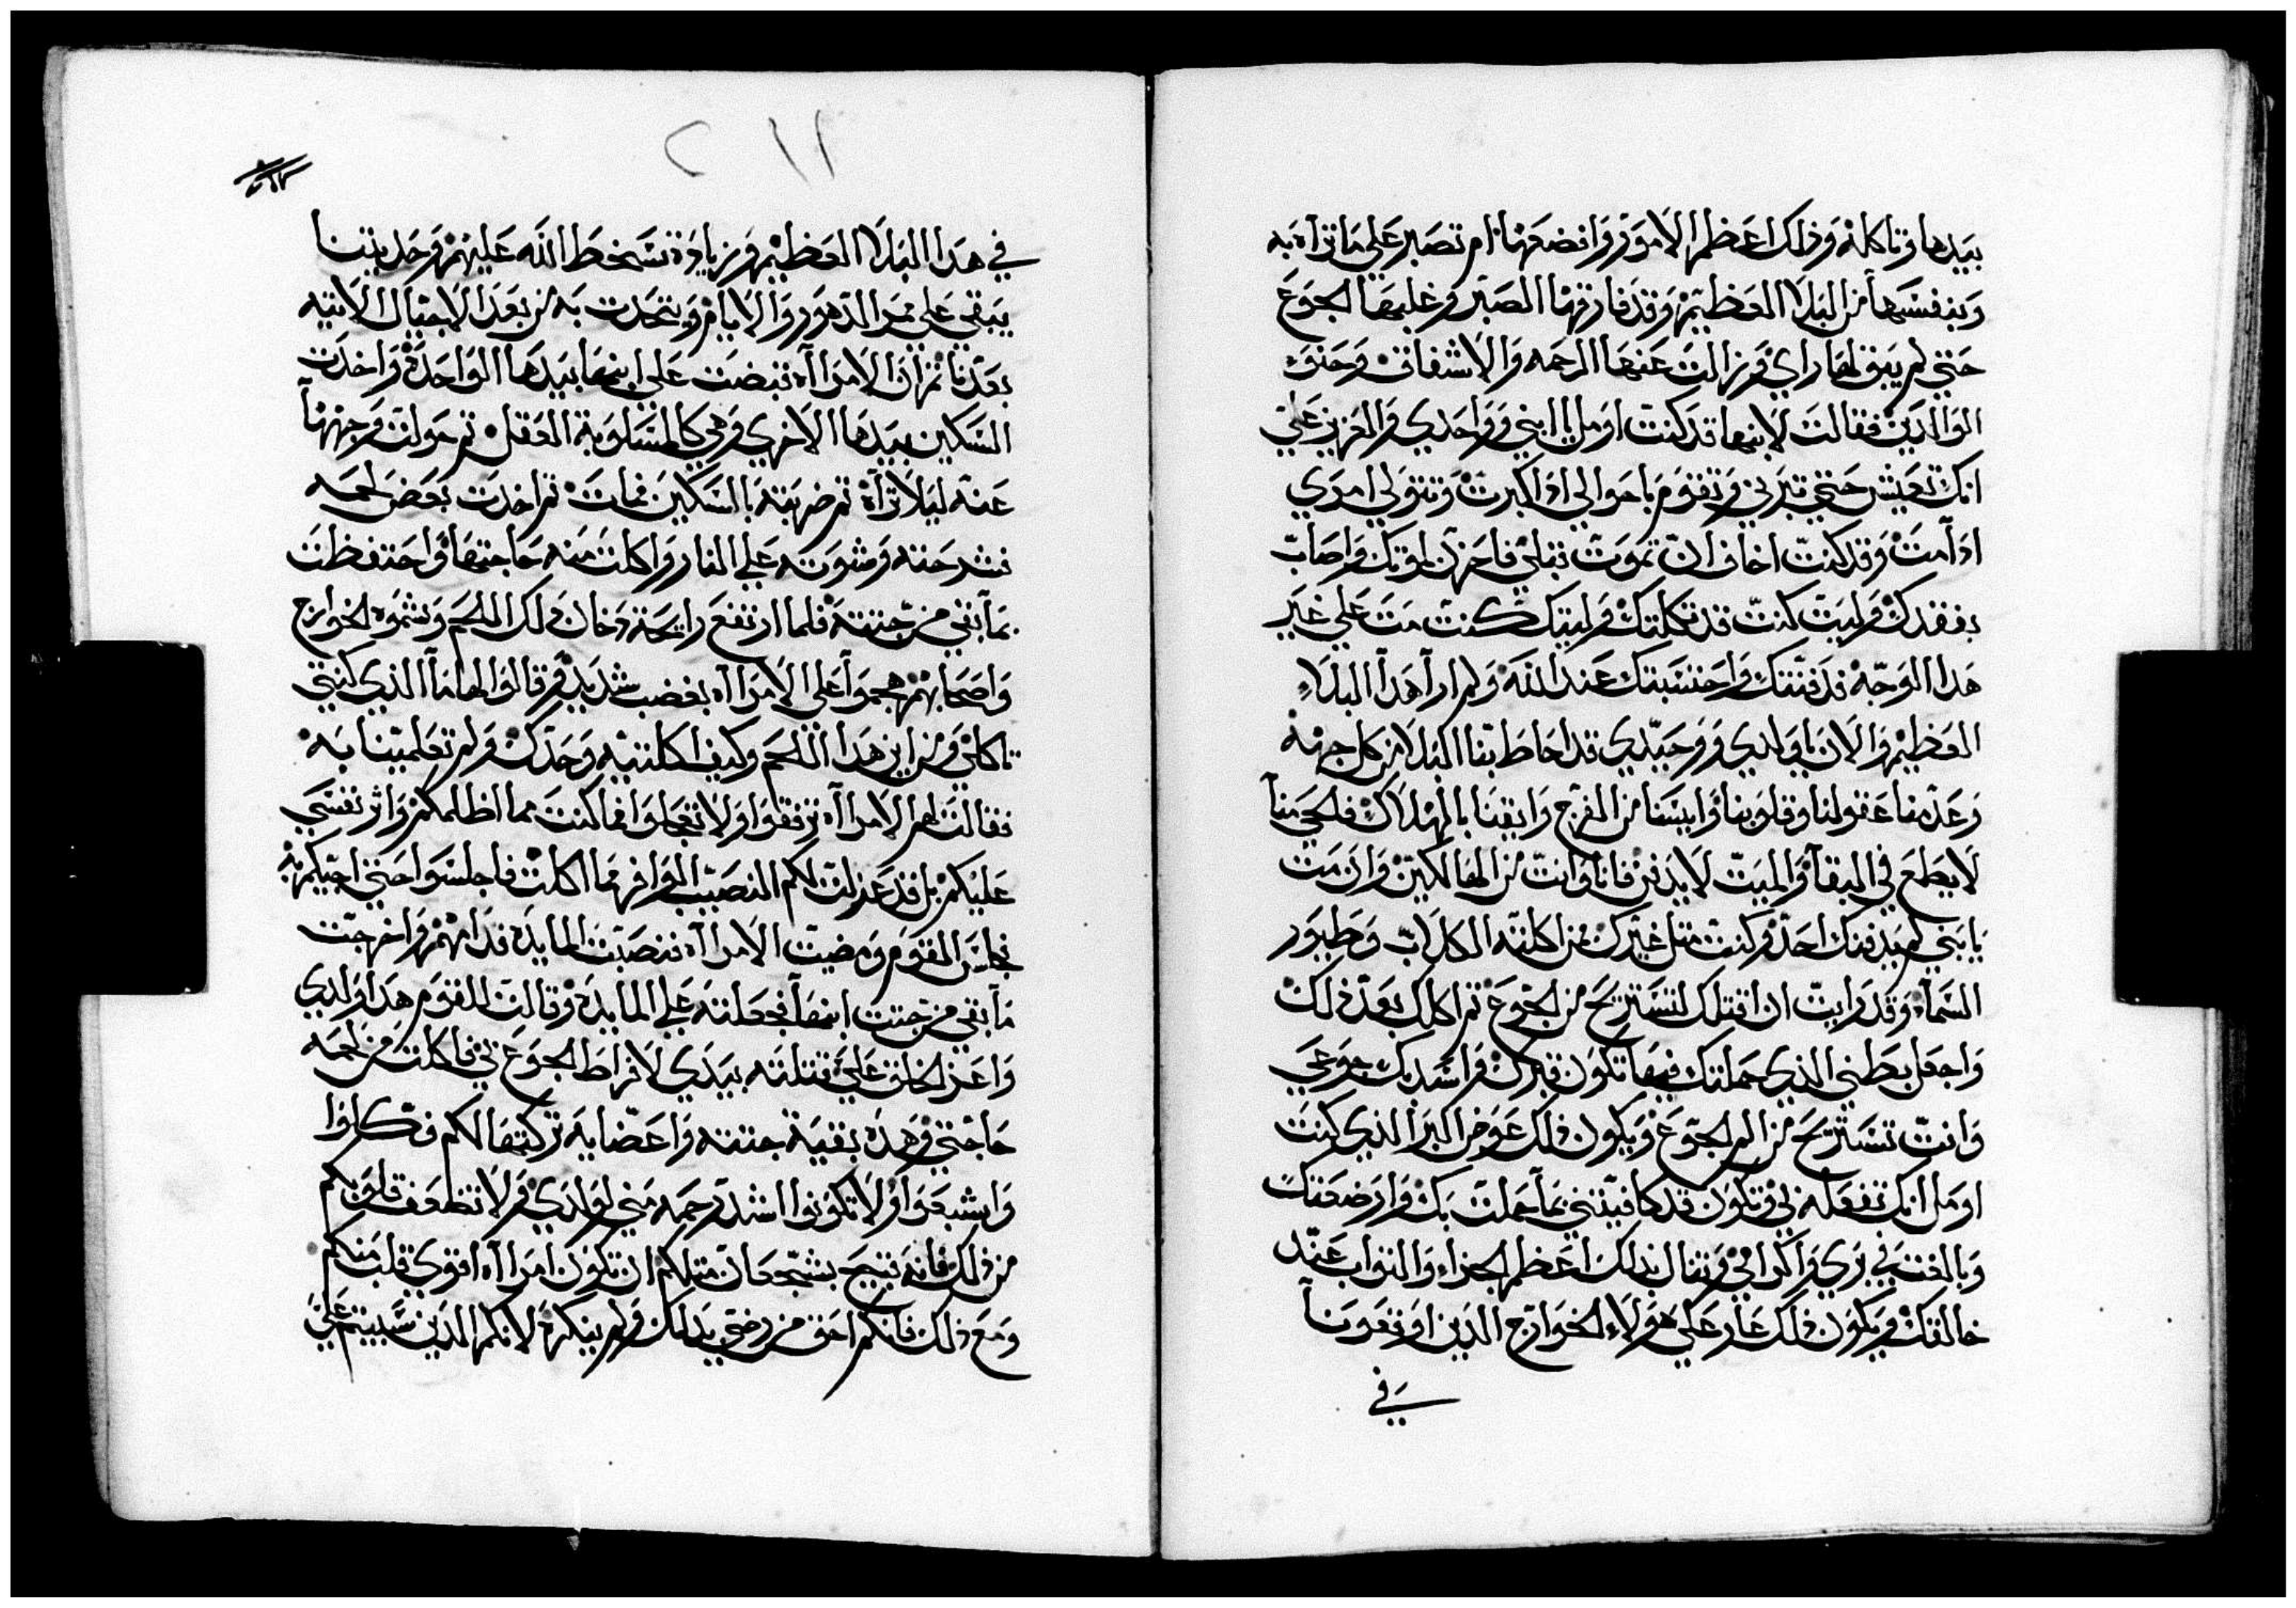 بيدها وتاكله وذلك اعظم الامور وافضعها ام تصبر علي ما تراه به
وبنفسها من البلا العظيم وقد فارقها الصبر وغلبها الجوع
حتي لم يبق لها راي وزالت عنها الرحمه والاشفاق وحنو
الوالدين فقالت لابنها قد كنت اومل يا ابني وواحدي والعزيز علي
انك تعيش حتي تبرني وتقوم باحوالي اذا كبرت وتتولي امري
اذا مت وقد كنت اخاف ان تموت قبلي فاحزن لموتك واصاب
بفقدك وليت كنت قد تكلتك وليتك كنت مت علي غير
هدا الوجه فدفنتك واحتسبتك عند الله ولم ارا هدا البلاء
العظيم والان يا ولدي ووحيدي قد احاط بنا البلا من كل جهه
وعدمنا عقولنا وقلوبنا وايسنا من الفرج وايقنا بالهلاك فلحي منا
لا يطمع في البقا والميت لا يدفن فانا وانت من الهالكين وان مت
يا بني لم يدفنك احد وكنت مثل غيرك من اكلته الكلاب وطيور
السماء وقد رايت ان اقتلك لتستريح من الجوع تم اكلك بعد ذلك
واجعل بطني الذي حملتك فيها تكون قبرك واسد بك جوعي
وانت تستريح من الم الجوع ويكون ذلك عوض البر الذي كنت
اومل انك تفعله بي وتكون قد كافيتني بما حملت بك وارضعتك
وبالغت في بري واكرامي وتنال بذلك اعظم الجزاء والتواب عند
خالقك ويكون ذلك عار علي هولاء الخوارج الدين اوقعونا
في
٢١١
في هدا البلا العظيم وزيادة تسخط الله عليهم وحديتنا
يبقي علي ممر الدهور والايام ويتحدت به من بعد الاجيال الاتيه
بعدنا تم ان الامراه قبضت علي ابنها بيدها الواحدة واخدت
السكين بيدها الاخري وهي كالمسلوبة العقل تم حولت وجهها
عنه ليلا تراه تم ضربته بالسكين فمات تم اخدت بعض لحمه
فشرحته وشوته علي النار واكلت منه حاجتها واحتفظت
بما بقي من جتته فلما ارتفع رايحة دخان ذلك اللحم وشموه الخوارج
واصحابهم هجموا علي الامراه بغضب شديد وقالوا لها ما الذي كنتي
تاكلي ومن اين هدا اللحم وكيف اكلتيه وحدك ولم تعلمينا به
فقالت لهم الامراه ترفقوا ولا تعجلوا فما كنت مما اظلمكم واثر نفسي
عليكم بل قد عزلت لكم النصيب الوافر مما اكلت فاجلسوا حتي اجيكم به
فجلس القوم ومضيت الامراه فنصبت المايده قدامهم واخرجت
ما بقي من جتت ابنها فجعلته علي المايدة وقالت للقوم هدا ولدي
واعز الخلق علي قتلته بيدي لافراط الجوع بي فاكلت من لحمه
حاجتي وهذه بقية جتته واعضايه تركتها لكم فكلوا
واشبعوا ولا تكونوا اشد رحمه مني لولدي ولا تضعف قلوبكم
من ذلك فانه قبيح بشجعان متلكم ان تكون امراه اقوي قلب منكم
ومع ذلك فانكم احق من رضي بدلك ولم ينكره لانكم الذين سبيتم علي